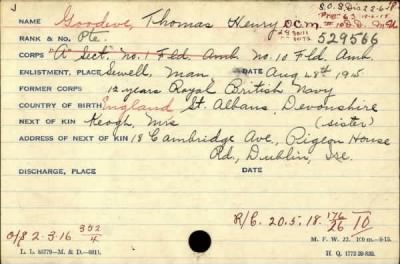 J
S.O.S. Dis 22-6-18
NAME Goodeve, Thomas Henry D.C.M.
RANK & NO. Pte. 529566
CORPS "A" Sect. No. 1 Fld. Amb. No. 10 Fld. Amb.
ENLISTMENT, PLACE Sewell, Man. DATE Aug 28th 1915
FORMER CORPS 12 years Royal British Navy
COUNTRY OF BIRTH England St. Albans, Devonshire
NEXT OF KIN Keogh, Mrs (sister)
ADDRESS OF NEXT OF KIN 18 Cambridge Ave., Pigeon House
Rd., Dublin, Ire.
DISCHARGE, PLACE DATE
R/C. 20.5.18. 176/26 10
O/S 2-3-16 302/4
L. L. 80779—M. & D.—6811. M. F. W. 22. 100m.—9-15.
H. Q. 1772-39-820.